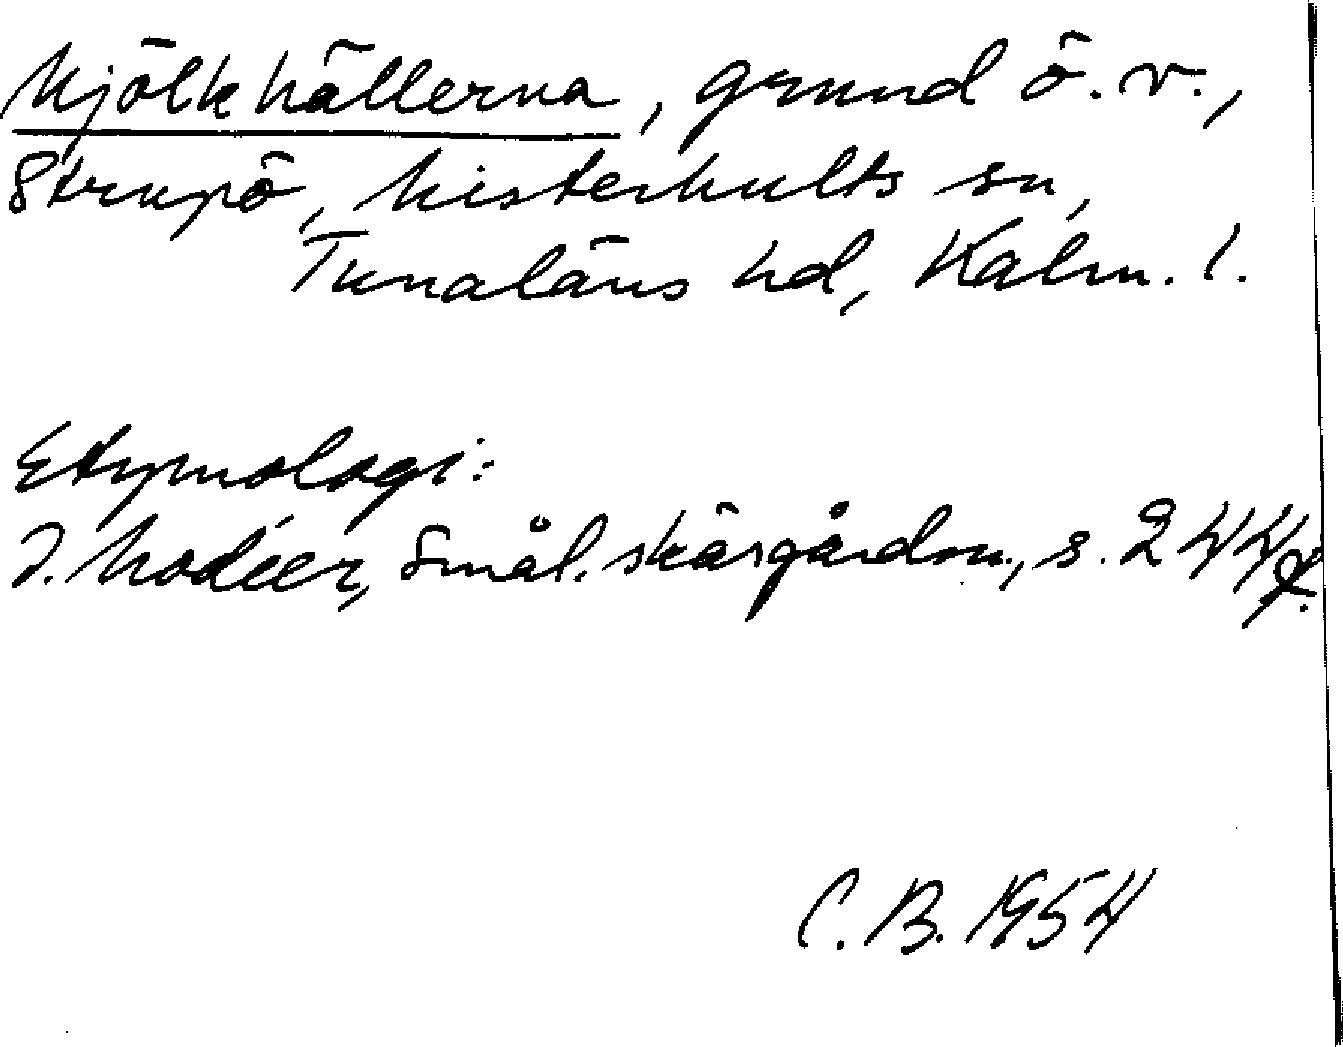 Mjölkhällerna, grund ö. v.,
Strupö, Misterhults sn,
Tunaläns hd, Kalm. l.
Etymologi:
I. Modéer, Smål. skärgårdsn., s. 244 f.
C. B. 1954